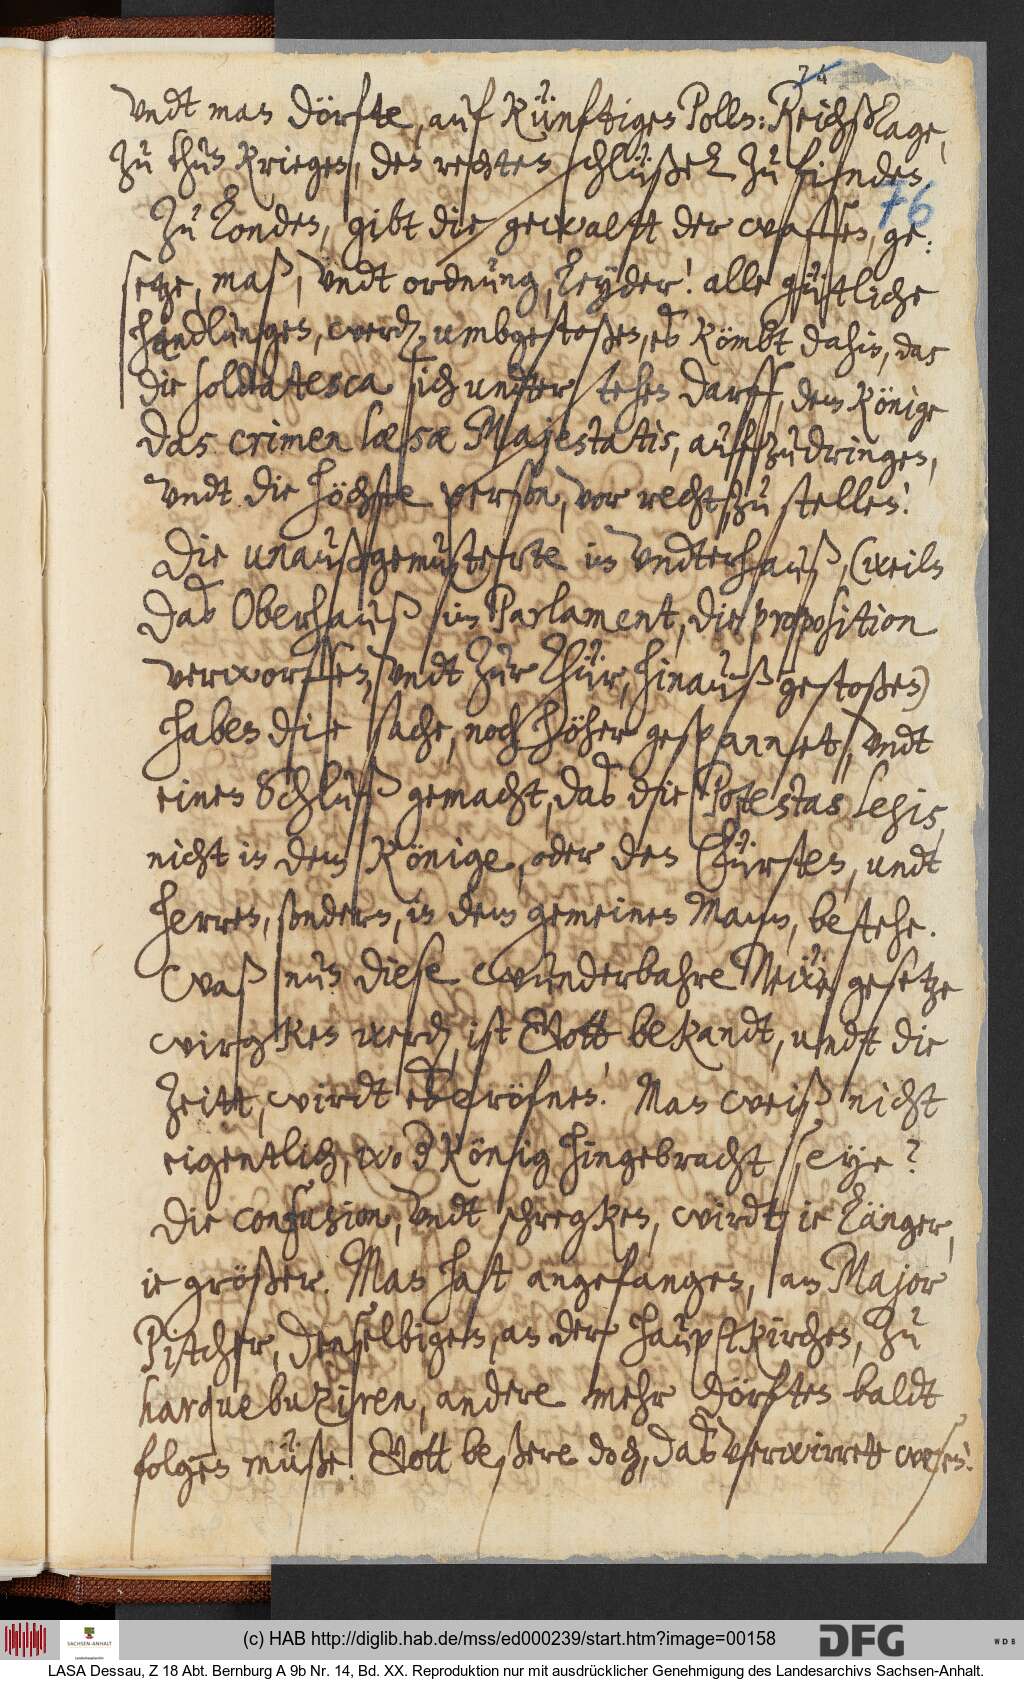 74
vndt man dörfte, auf künftigen Polln: Reichßtage,
zu thun kriegen, den rechten schlüßel zu finden.
76
Zu Londen, gibt die gewaltt der waffen, ge:
setze, maß, vndt ordnung, leyder! alle gühtliche
handlungen, werden umbgestoßen, es kömbt dahin, das
die soldatesca sich unter stehen darff, dem Könige
das crimen læsæ Majestatis, auffzudringen,
vndt die höchste person, vor recht, zu stellen!
Die unaußgemusterte im vndterhauß, (weiln
das Oberhauß im Parlament, die proposition
verworffen, vndt zur thür, hinauß gestoßen)
haben die sache, noch höher gespannet, vndt
einen Schluß gemacht, das die Potestas Legis,
nicht in dem Könige, oder den Fürsten, undt
herren, sondern, in dem gemeinen Mann, bestehe.
Waß nun diese wunderbahre Newe gesetze
wirgken werden, ist Gott bekandt, undt die
Zeitt, wirdt es eröfnen. Man weiß nicht
eigentlich, wo der König hingebracht seye?
Die confusion, vndt schregken, wirdt ie länger,
ie größer. Man hatt angefangen, am Major
Pitcher, denselbigen, an der Hauptkirchen, zu
harquebuziren, andere mehr dörften baldt
folgen müßen. Gott beßere doch, das verwirrete wesen!
(c) HAB http://diglib.hab.de/mss/ed000239/start.htm?image=00158
SACHSEN-ANHALT
DFG
WDB
LASA Dessau, Z 18 Abt. Bernburg A 9b Nr. 14, Bd. XX. Reproduktion nur mit ausdrücklicher Genehmigung des Landesarchivs Sachsen-Anhalt.